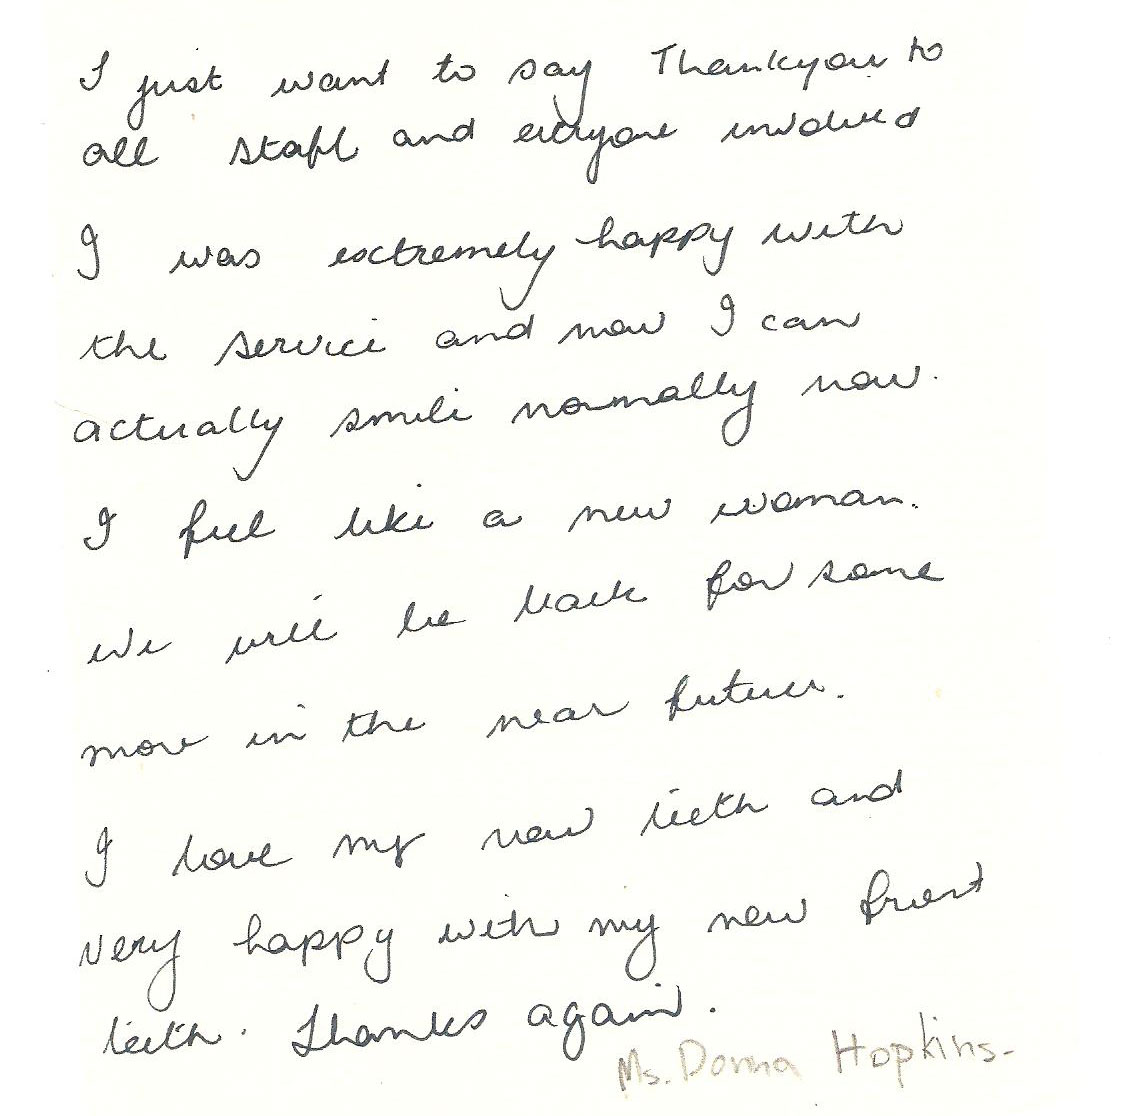 I just want to say Thankyou to
all staff and everyone involved
I was extremely happy with
the service and now I can
actually smile normally now.
I feel like a new woman.
We will be back for some
more in the near future.
I love my new teeth and
very happy with my new front
teeth. Thanks again.
Ms. Donna Hopkins-